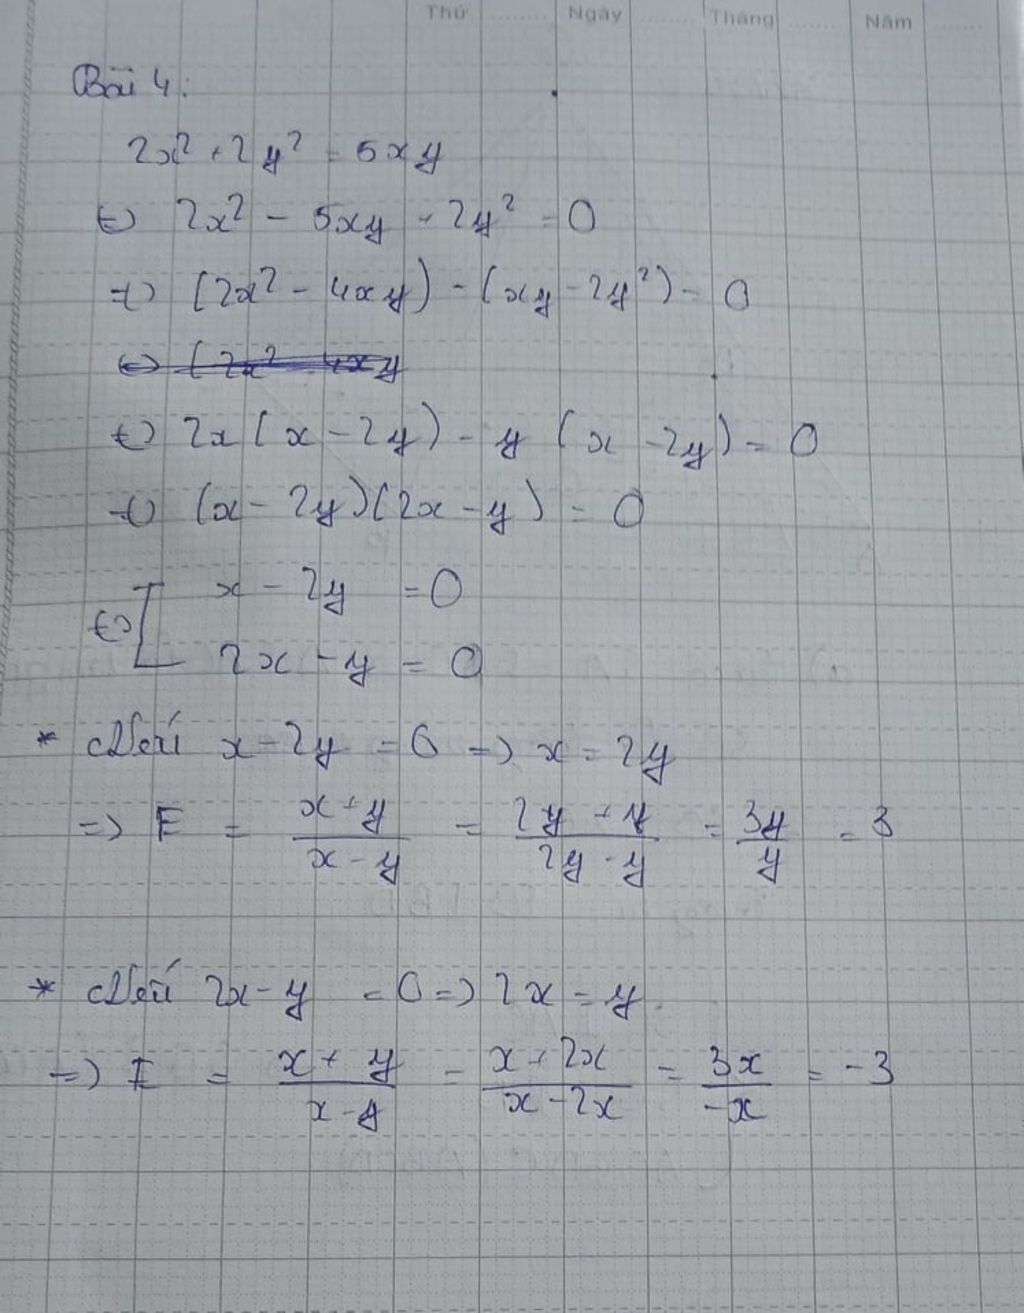 Thứ ........ Ngày ........ Tháng ........ Năm ........
Bài 4:
2x² + 2y² = 5xy
⇔ 2x² - 5xy + 2y² = 0
⇔ (2x² - 4xy) - (xy - 2y²) = 0
⇔ (2x² - 4xy
⇔ 2x(x - 2y) - y(x - 2y) = 0
⇔ (x - 2y)(2x - y) = 0
⇔ [ x - 2y = 0
2x - y = 0
* Nếu x - 2y = 0 => x = 2y
=> E = (x + y)/(x - y) = (2y + y)/(2y - y) = 3y/y = 3
* Nếu 2x - y = 0 => 2x = y
=> E = (x + y)/(x - y) = (x + 2x)/(x - 2x) = 3x/-x = -3